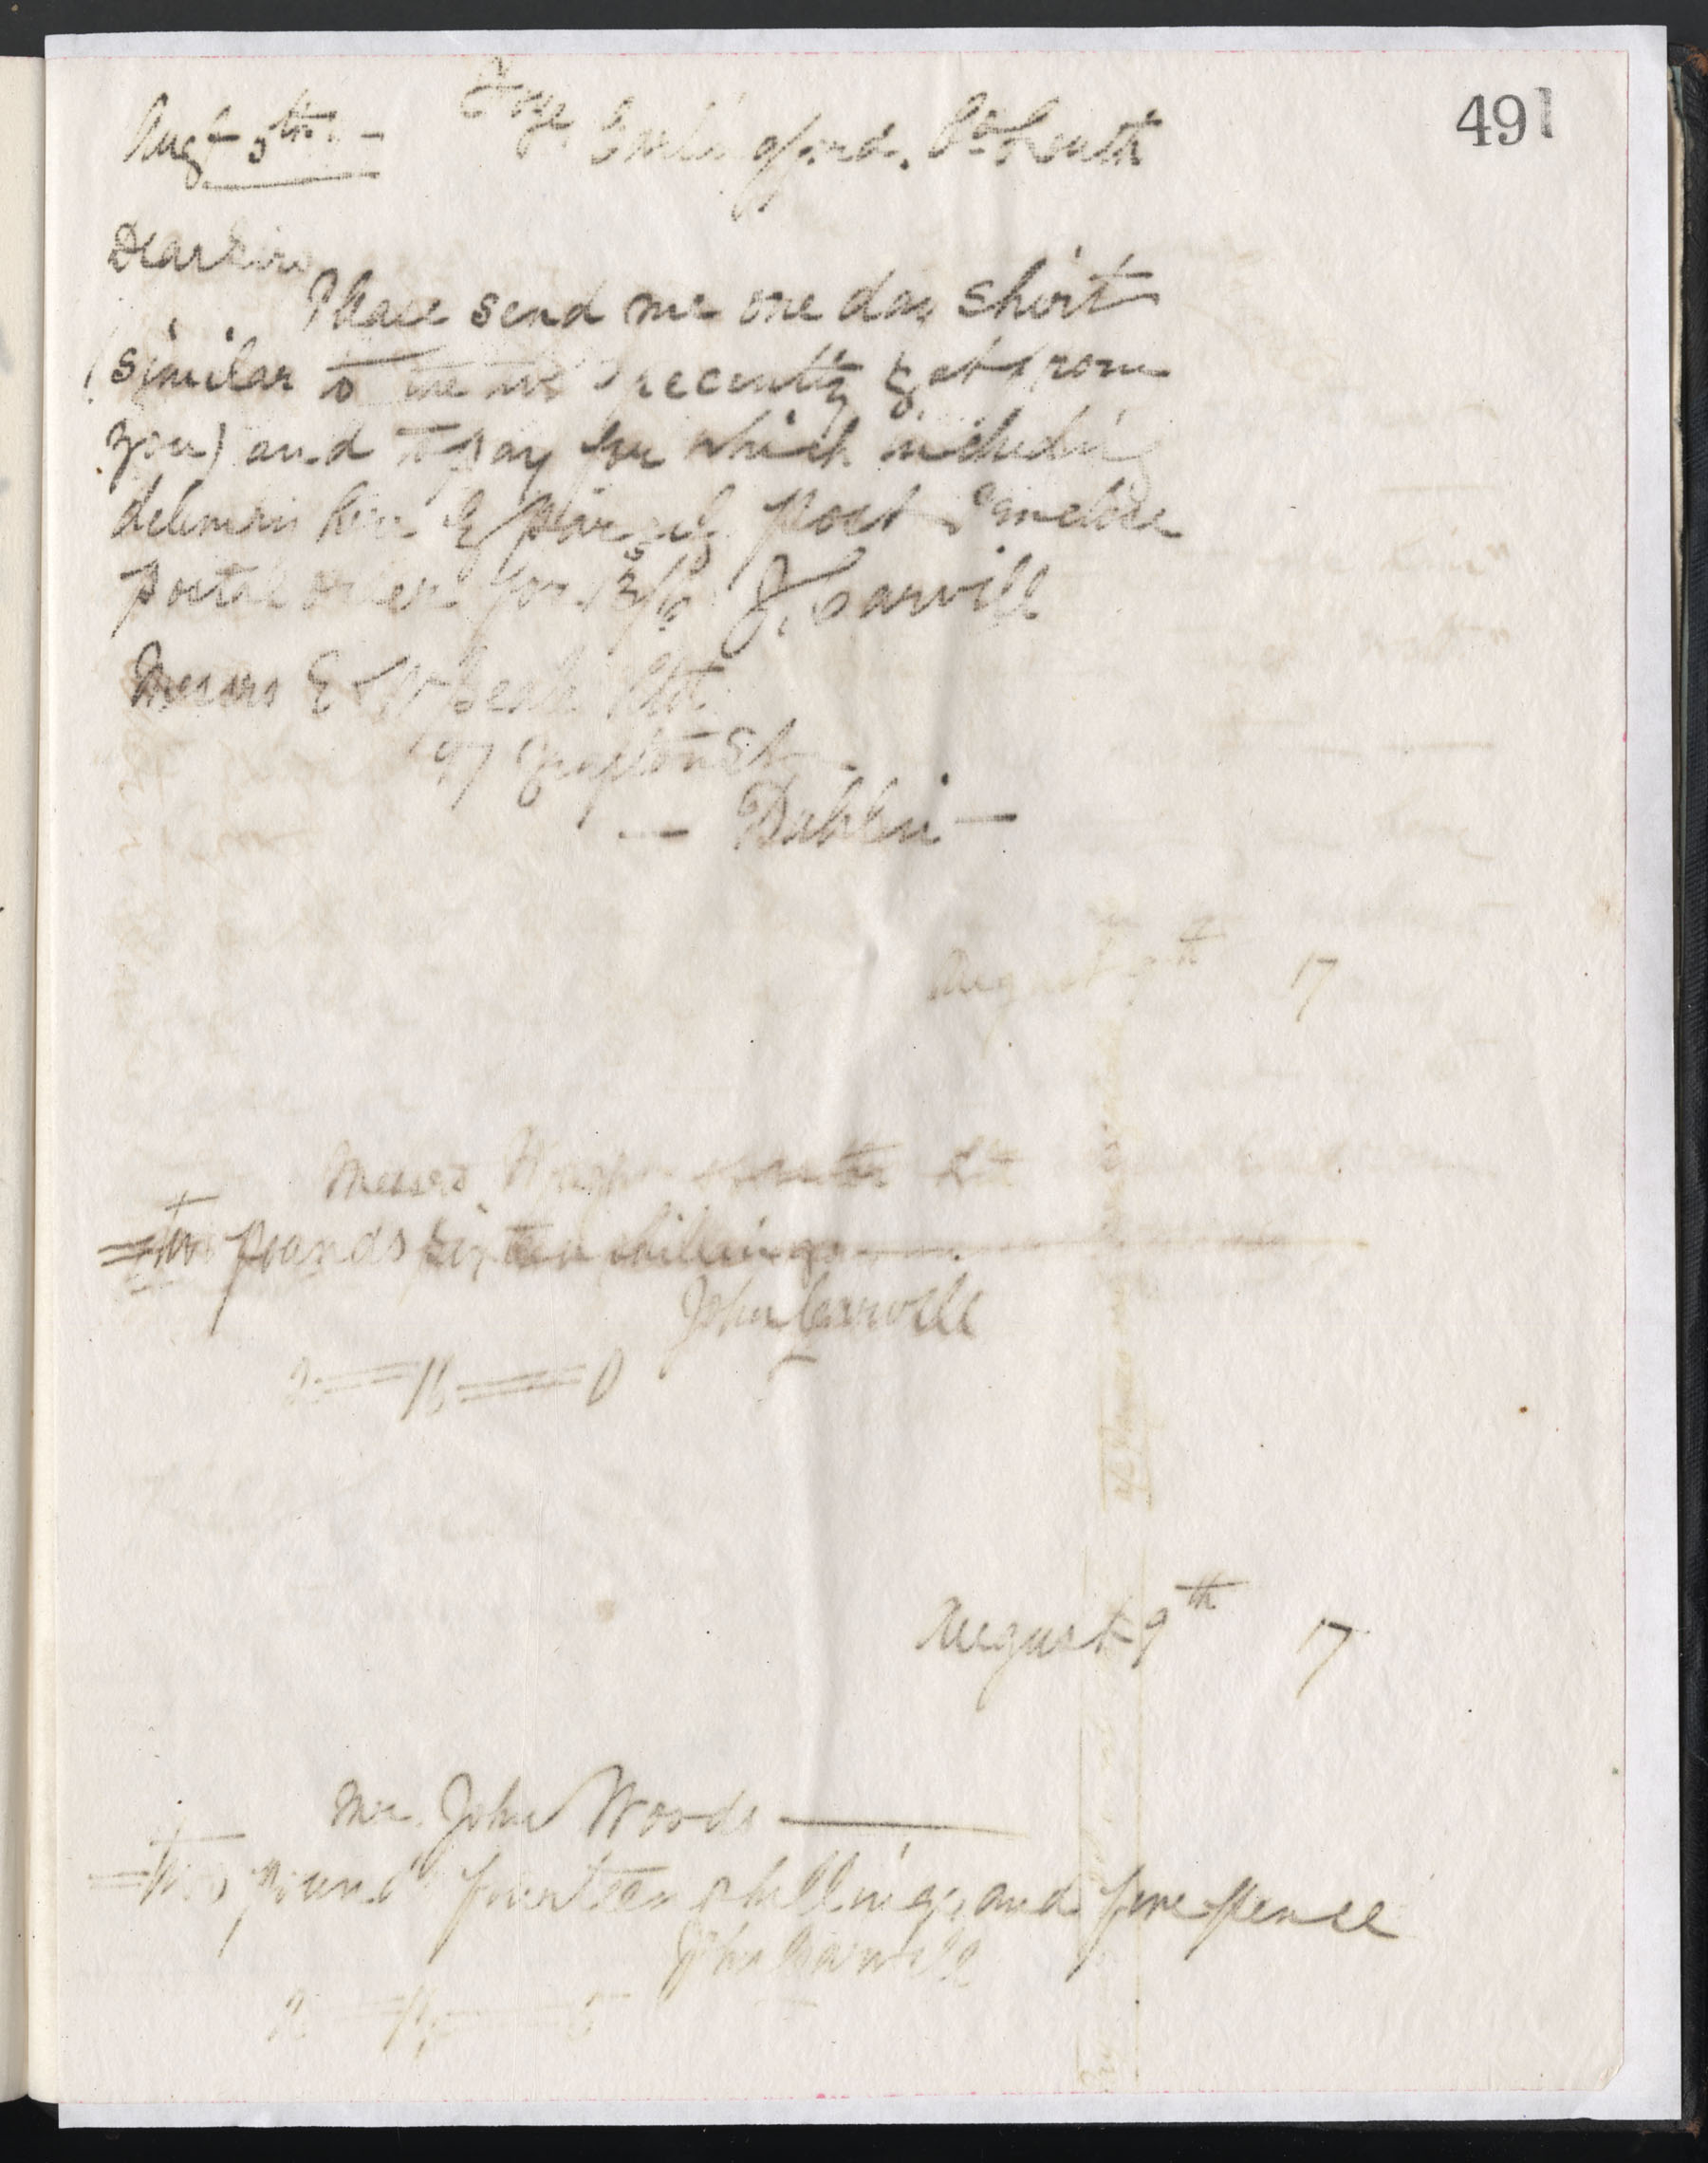 491
Augt 5th - Carlingford. Co Louth
Dear Sirs
Please send me one day shirt
(similar to the two I recently got from
you) and to pay for which including
here by parcel post I enclose
postal order for J. Carvill
Messrs E & W Ltd
97 Grafton St
— Dublin —
August 9th 17
Messrs Ltd
= two pounds sixteen shillings
John Carvill
2 = 16 = 0
August 9th 17
Mr. John Woods
= two pounds fourteen shillings and five pence
John Carvill
2 = 14 = 5